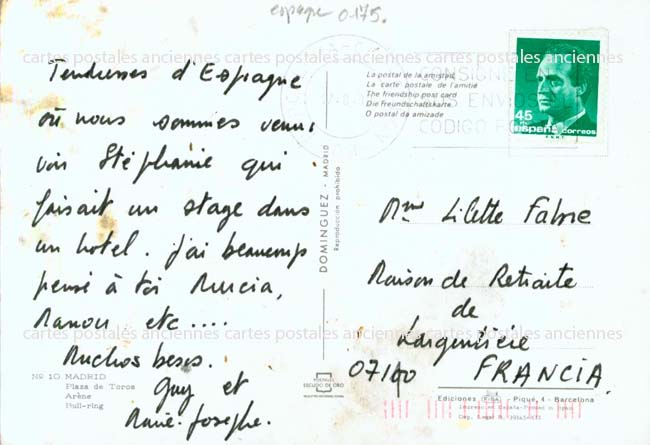 espagne 0.175.
Tendresses d'Espagne
où nous sommes venus
voir Stéphanie qui
faisait un stage dans
un hotel. j'ai beaucoup
pensé à toi Murcia,
Manou etc....
Muchos besos.
Guy et
Marie-Josephe.
Nº 10 MADRID
Plaza de Toros
Arène
Bull-ring
DOMINGUEZ - MADRID
Reproducción prohibida
POSTALES
ESCUDO DE ORO
La postal de la amistad
La carte postale de l'amitié
The friendship post card
Die Freundschaftskarte
O postal da amizade
CONSIGNE EN
SUS ENVIOS EL
CODIGO POSTAL
45
españa correos
Mme Lilette Fabre
Maison de Retraite
de
Largentière
07110 FRANCIA.
Ediciones Piqué, 4 - Barcelona
cartes postales anciennes cartes postales anciennes cartes postales anciennes
cartes postales anciennes cartes postales anciennes cartes postales anciennes